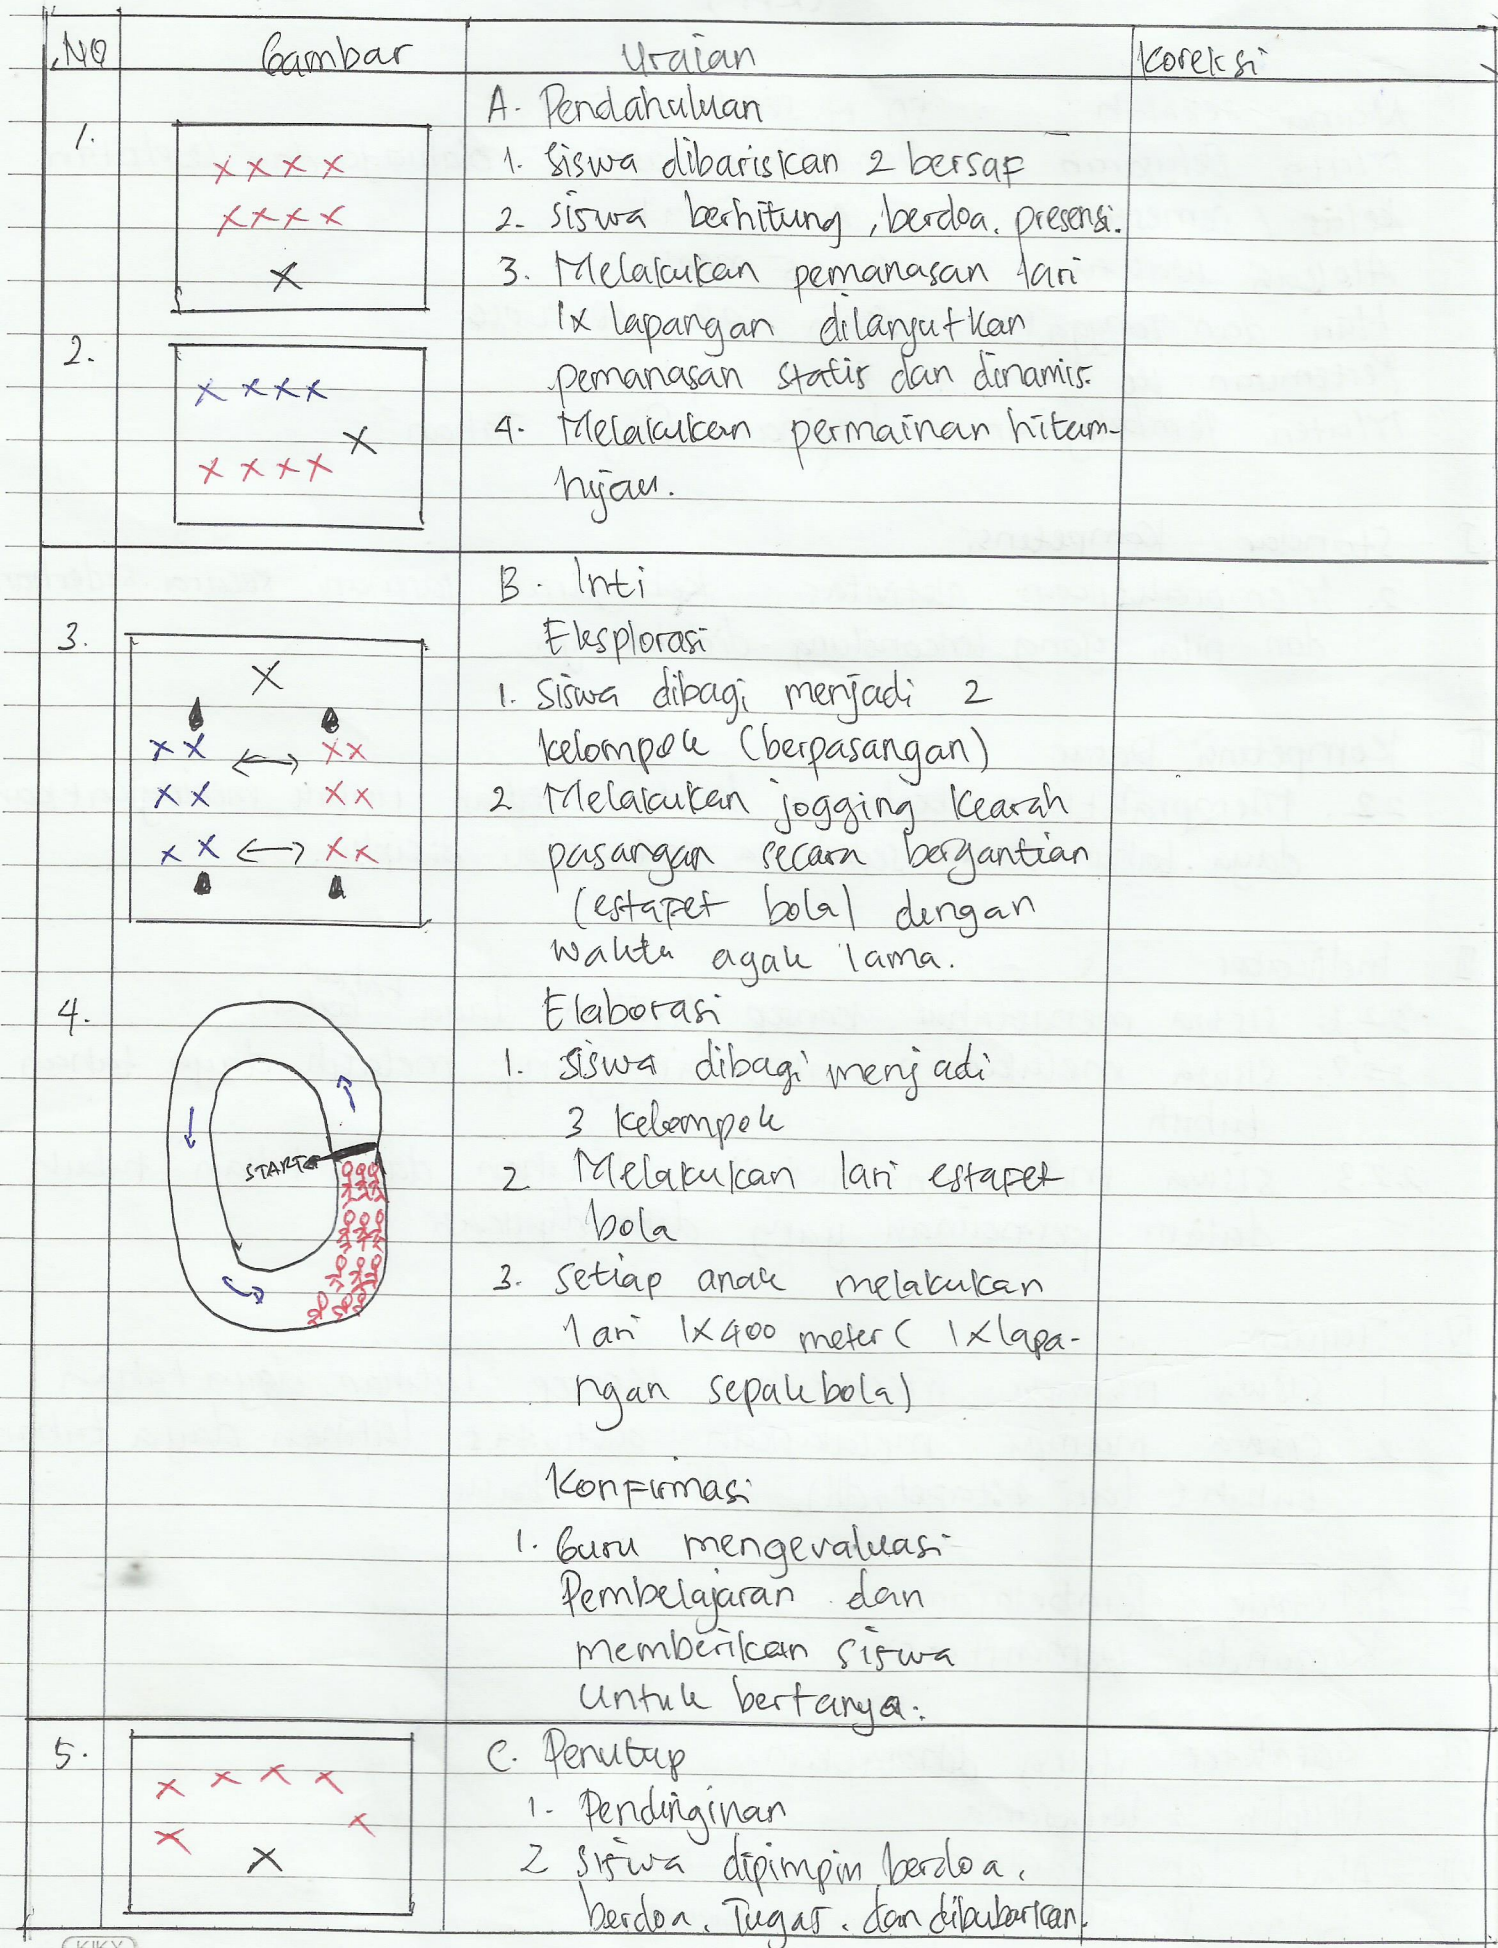 NO Gambar Uraian Koreksi
A. Pendahuluan
1. 1. Siswa dibariskan 2 bersaf
2. Siswa berhitung, berdoa. presensi.
3. Melakukan pemanasan lari
1x lapangan dilanjutkan
2. pemanasan statis dan dinamis.
4. Melakukan permainan hitam-
hijau.
B. Inti
3. Eksplorasi
1. Siswa dibagi menjadi 2
kelompok (berpasangan)
2 Melakukan jogging kearah
pasangan secara bergantian
(estafet bola) dengan
waktu agak lama.
4. Elaborasi
1. Siswa dibagi menjadi
3 kelompok
START
2 Melakukan lari estafet
bola
3. Setiap anak melakukan
lari 1x400 meter ( 1x lapa-
ngan sepakbola)
Konfirmasi
1. Guru mengevaluasi
Pembelajaran dan
memberikan siswa
untuk bertanya.
5. C. Penutup
1. Pendinginan
2 Siswa dipimpin berdoa.
berdoa. Tugas. dan dibubarkan.
KIKY